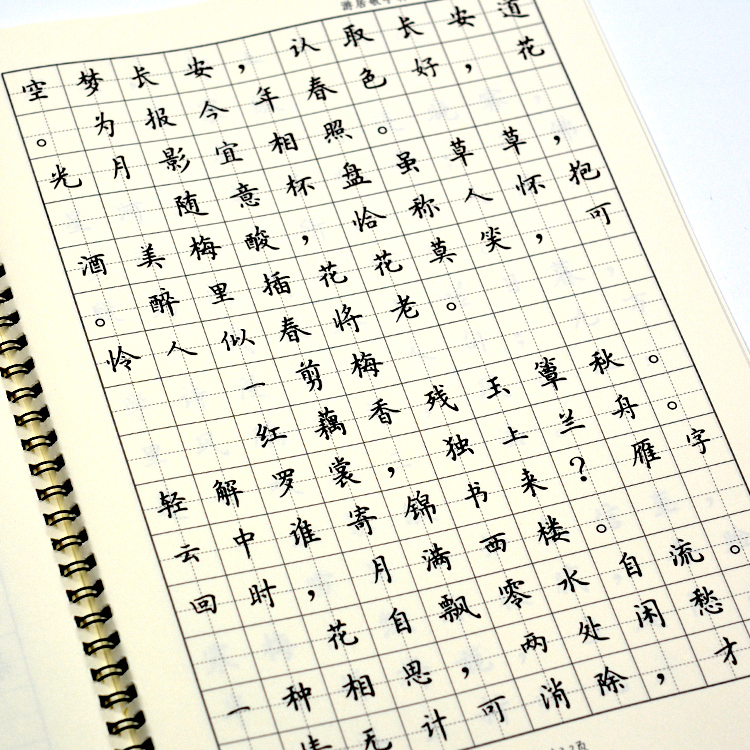 空梦长安，认取长安道
。为报今年春色好，花
光月影宜相照。
随意杯盘虽草草，
酒美梅酸，恰称人怀抱
。醉里插花花莫笑，可
怜人似春将老。
一剪梅
红藕香残玉簟秋。
轻解罗裳，独上兰舟。
云中谁寄锦书来？雁字
回时，月满西楼。
花自飘零水自流。
一种相思，两处闲愁
情无计可消除，才